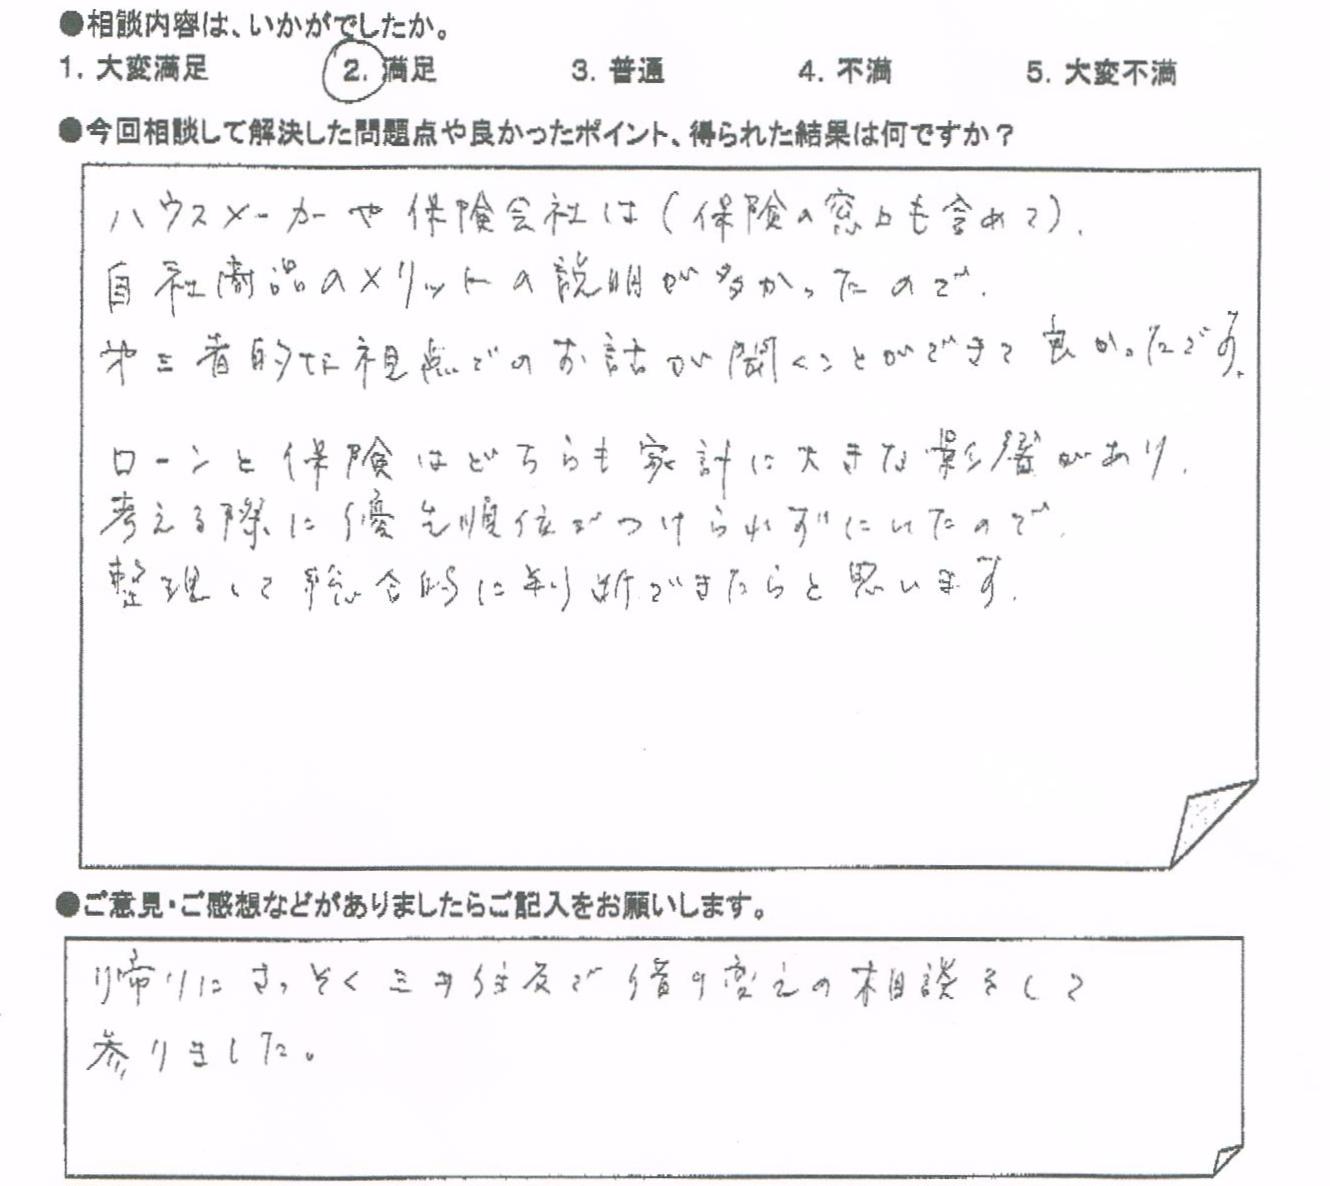 ●相談内容は、いかがでしたか。
1. 大変満足 2. 満足 3. 普通 4. 不満 5. 大変不満
●今回相談して解決した問題点や良かったポイント、得られた結果は何ですか？
ハウスメーカーや保険会社は(保険の窓口も含めて)、
自社商品のメリットの説明が多かったので、
第三者的な視点でのお話が聞くことができて良かったです。
ローンと保険はどちらも家計に大きな影響があり、
考える際に優先順位がつけられずにいたので、
整理して総合的に判断できたらと思います。
●ご意見・ご感想などがありましたらご記入をお願いします。
帰りにさっそく三井住友で借り変えの相談をして
参りました。